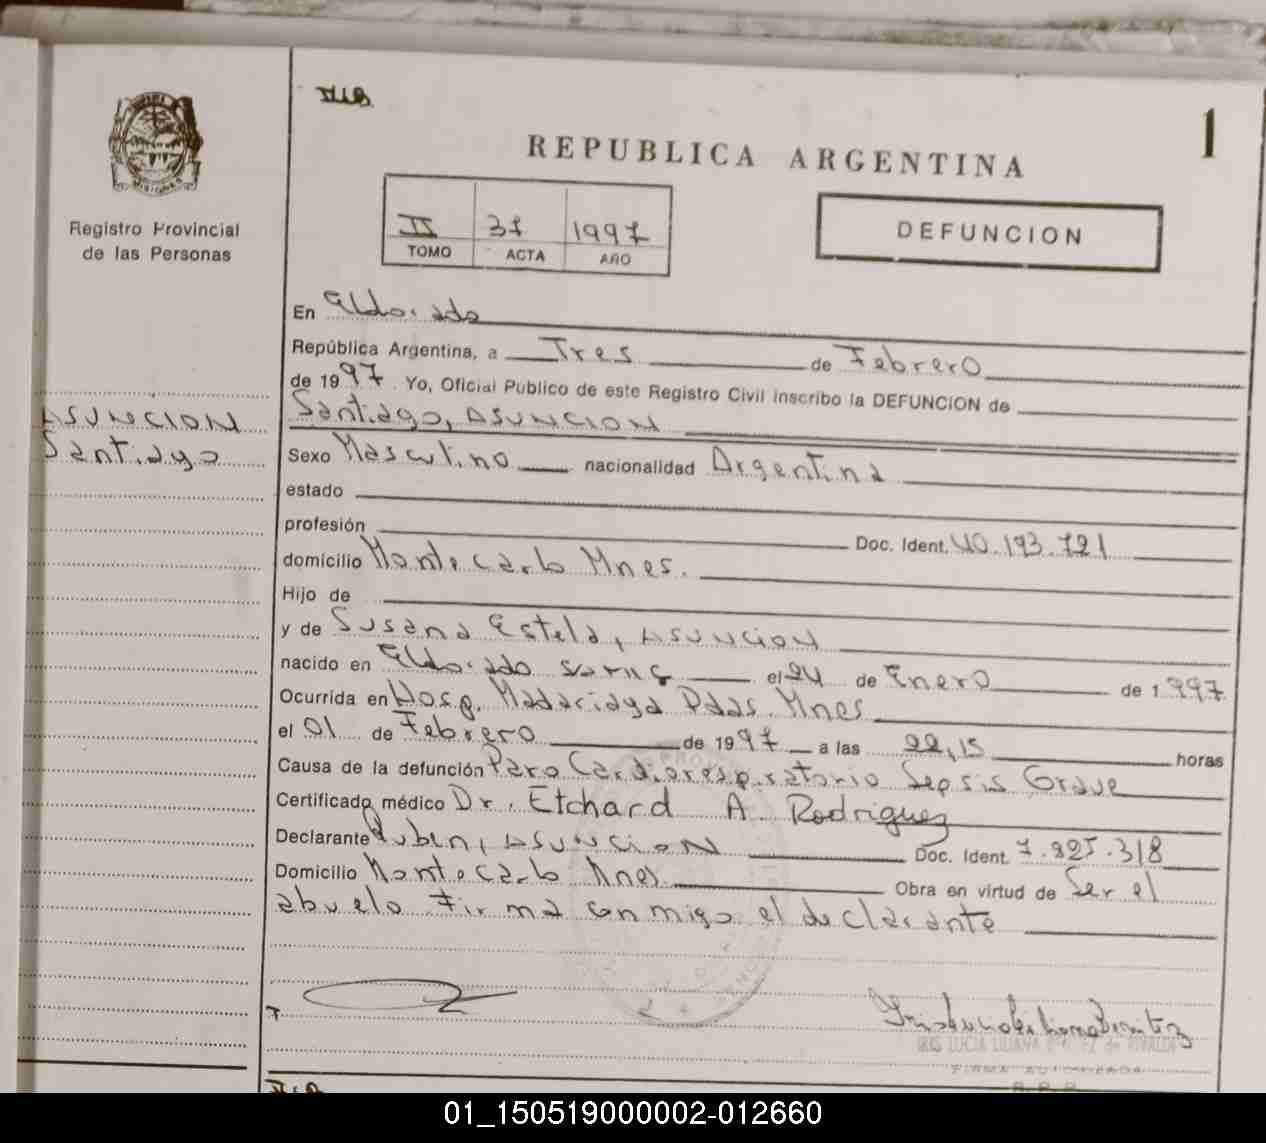 1
REPUBLICA ARGENTINA
MISIONES
Registro Provincial
de las Personas
II 37 1997
TOMO ACTA AÑO
DEFUNCION
En Eldorado
República Argentina, a Tres de Febrero
de 1997. Yo, Oficial Publico de este Registro Civil inscribo la DEFUNCION de
ASUNCION
Santiago
Santiago, ASUNCION
Sexo Masculino nacionalidad Argentina
estado
profesión Doc. Ident. 40.193.721
domicilio Montecarlo Mnes.
Hijo de
y de Susana Estela, ASUNCION
nacido en Eldorado el 24 de Enero de 1997
Ocurrida en Hosp. Madariaga Pdas. Mnes
el 01 de Febrero de 1997 a las 22,15 horas
Causa de la defunción Paro Cardiorespiratorio Sepsis Grave
Certificado médico Dr. Etchard A. Rodriguez
Declarante Ruben, ASUNCION Doc. Ident. 7.825.318
Domicilio Montecarlo Mnes. Obra en virtud de Ser el
abuelo Firma conmigo el declarante
IRIS LUCIA LILIANA
FIRMA AUTORIZADA
01_150519000002-012660